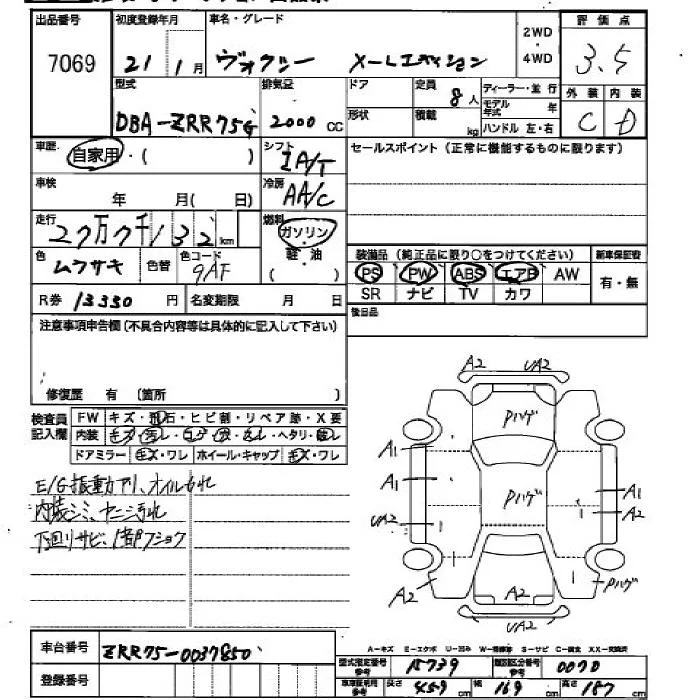 出品番号 初度登録年月 車名・グレード 2WD・4WD 評価点
7069 21年1月 ヴォクシー X-Lエディション 3.5
型式 排気量 ドア 定員 8人 ディーラー・並行 外装 内装
DBA-ZRR75G 2000cc 形状 積載 kg モデル年式 年 ハンドル 左・右 C D
車歴 自家用・( ) シフト IA/T セールスポイント(正常に機能するものに限ります)
車検 年 月( 日) 冷房 AA/C
走行 27万7千132km 燃料 ガソリン 軽・油 ( )
色 ムラサキ 色替 色コード 9AF
装備品(純正品に限り○をつけてください) 新車保証書
PS PW ABS エアB AW 有・無
SR ナビ TV カワ
R券 13330円 名変期限 月 日 後日品
注意事項申告欄(不具合内容等は具体的に記入して下さい)
修復歴 有 (箇所 )
検査員記入欄 FW キズ・飛石・ヒビ割・リペア跡・X要
内装 ヘタリ
ドアミラー キズ・ワレ ホイール・キャップ キズ・ワレ
E/G振動アリ、オイルもれ
内装シミ、ヤニ汚れ
下回りサビ、1部フショク
A2 UA2
Pハゲ
A1
A1 Pハゲ A1
UA2 A2
A2 A2 Pハゲ
UA2
A-キズ E-エクボ U-凹み W-補修跡 S-サビ C-腐食 XX-交換済
車台番号 ZRR75-0037850
型式指定番号参考 15739 類別区分番号参考 0070
登録番号
車車証明用参考 長さ 459cm 幅 169cm 高さ 187cm